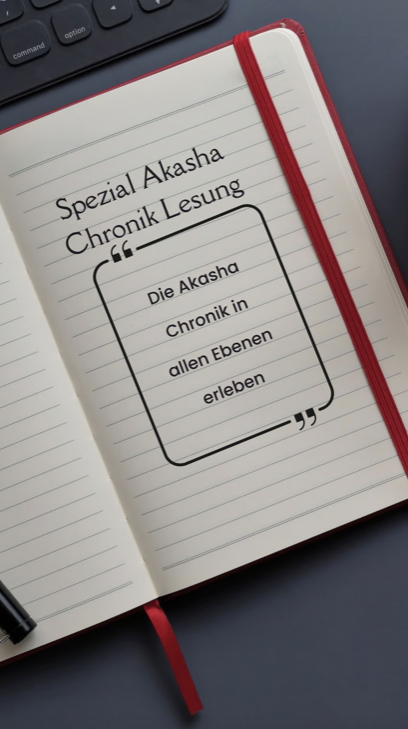 command
option
Spezial Akasha
Chronik Lesung
“
Die Akasha
Chronik in
allen Ebenen
erleben
”